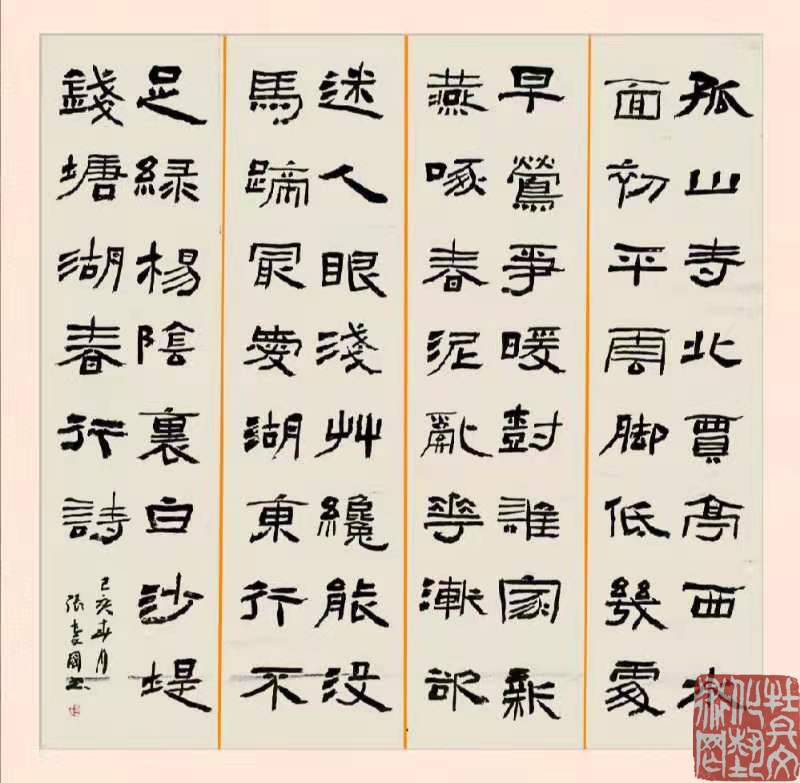 孤山寺北賈亭西水
面初平雲脚低幾處
早鶯爭暖樹誰家新
燕啄春泥亂花漸欲
迷人眼淺艸纔能没
馬蹄最愛湖東行不
足緑楊陰裏白沙堤
錢塘湖春行詩
己亥春月